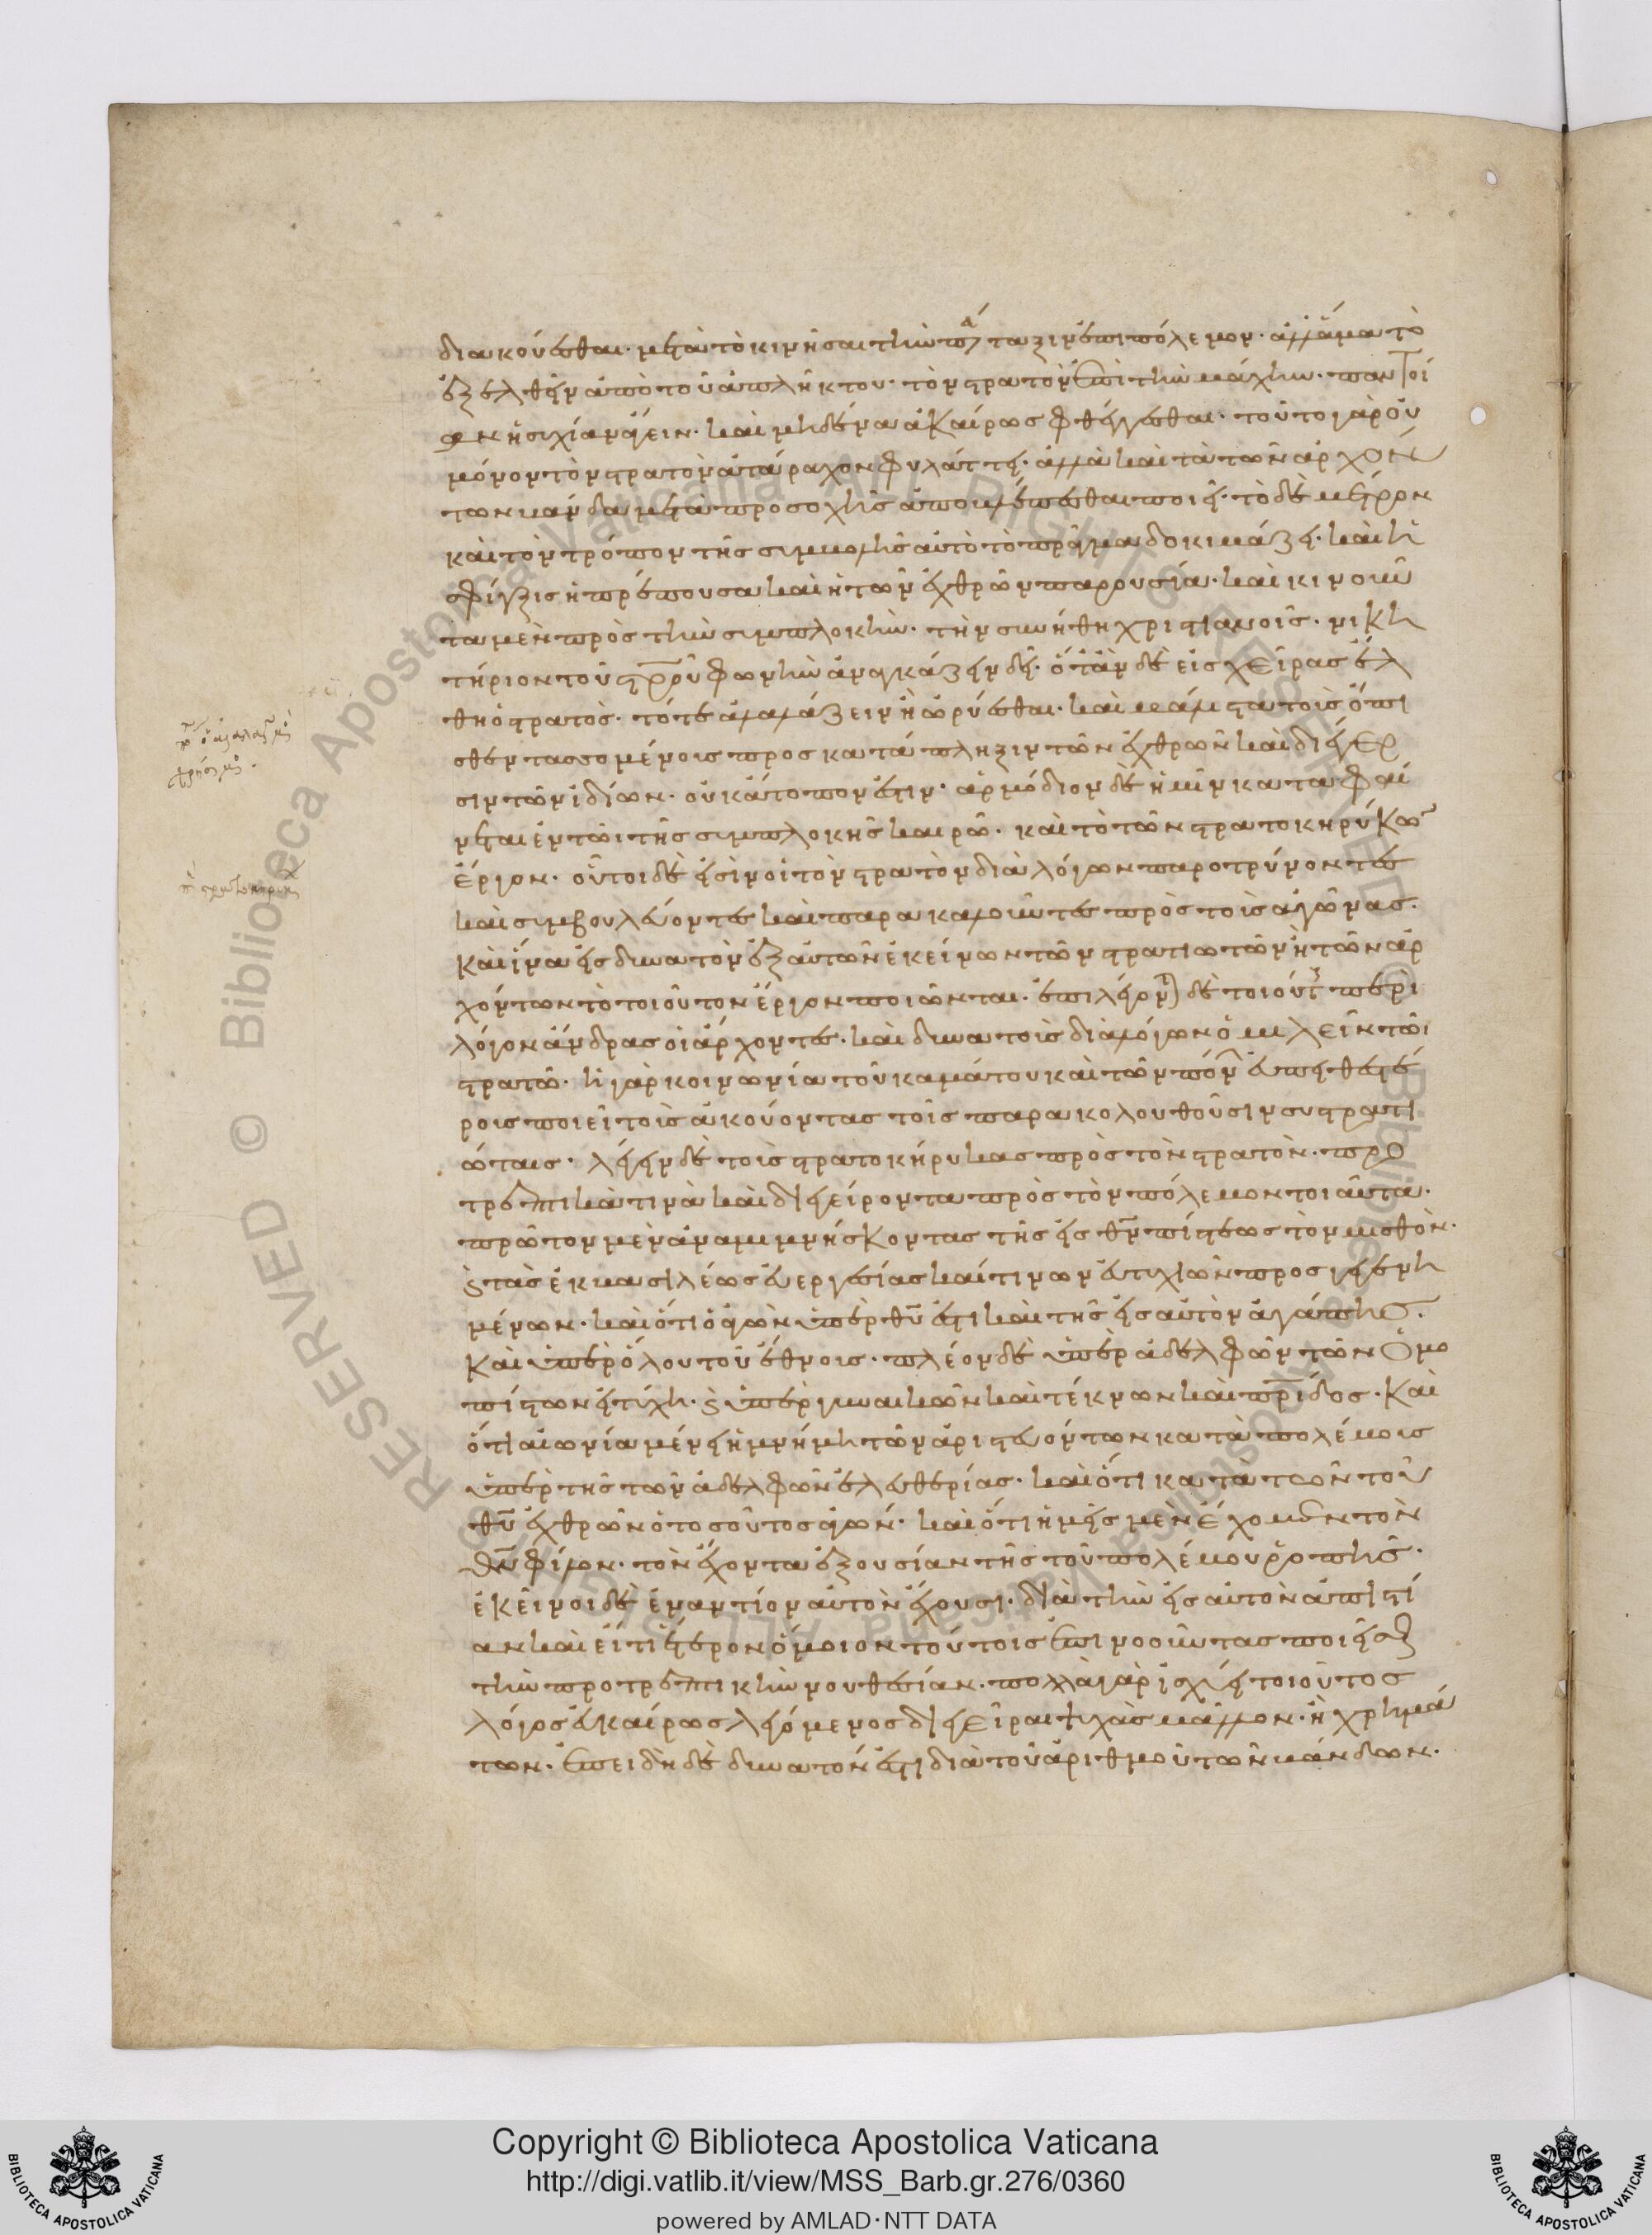 διακούεσθαι. μετὰ τὸ κινῆσαι τὴν πα τάξιν ἐπὶ πόλεμον. ἀλλ' ἅμα τὸ
ἐξελθεῖν ἀπὸ τοῦ ἀπλήκτου. τὸν στρατὸν ἐπὶ τὴν μάχην. παντοί
αν ἡσυχίαν ἄγειν. καὶ μηδένα ἀκαίρως φθέγγεσθαι. τοῦτο γὰρ οὐ
μόνον τὸν στρατὸν ἀτάραχον φυλάττει. ἀλλὰ καὶ τὰ τῶν ἀρχόν
των μανδα μετὰ προσοχῆς ἀποβλέπεσθαι ποιεῖ. τὸ δὲ μέτρον
καὶ τὸν τρόπον τῆς συμβολῆς αὐτὸ τὸ πρᾶγμα δοκιμάζει. καὶ ἡ
σφίγξις ἡ πρέπουσα καὶ ἡ τῶν ἐχθρῶν παρουσία. καὶ κινοῦν
τα μὲν πρὸς τὴν συμπλοκὴν. τὴν συνήθη χριστιανοῖς. νικη
τήριον τοῦ στρου φωνὴν ἀνακράζειν δεῖ. ὅταν δὲ εἰς χεῖρας ἔλ
θη ὁ στρατὸς. τότε ἀλαλάζειν ἢ ὠρύεσθαι. καὶ μάλιστα τοῖς ὄπι
σθεν τασσομένοις προς κατάπληξιν τῶν ἐχθρῶν καὶ διέγερ
σιν τῶν ἰδίων. οὐκ ἄτοπόν ἐστιν. ἁρμόδιον δὲ ἡμῖν καταφαί
νεται ἐν τῶι τῆς συμπλοκῆς καιρῶ. καὶ τὸ τῶν στρατοκηρύκων
ἔργον. οὗτοι δὲ εἰσὶν οἱ τὸν στρατὸν διὰ λόγων παροτρύνοντες
καὶ συμβουλεύοντες καὶ παρακαλοῦντες πρὸς τοὺς ἀγῶνας.
καὶ ἵνα εἰς δυνατὸν ἐξ αὐτῶν ἐκείνων τῶν στρατιωτῶν ἢ τῶν ἀρ
χόντων τὸ τοιοῦτον ἔργον ποιῶνται. ἐπιλέγονται δὲ τοιούτους περὶ
λόγον ἄνδρας οἱ ἄρχοντες. καὶ δυνατοὺς διὰ λόγων ὁμιλεῖν τῶι
στρατῶ. ἡ γὰρ κοινωνία τοῦ καμάτου καὶ τῶν πόνων εὐπειθεστέ
ρους ποιεῖ τοὺς ἀκούοντας τοῖς παρακολουθοῦσιν συστρατι
ώταις. λέγειν δὲ τοὺς στρατοκήρυκας πρὸς τὸν στρατὸν. προ
τρεπτικά τινα καὶ διεγείροντα πρὸς τὸν πόλεμον τοιαῦτα.
πρῶτον μὲν ἀναμιμνήσκοντας τῆς εἰς θν πίστεως τὸν μισθὸν.
καὶ τὰς ἐκ βασιλέως εὐεργεσίας καὶ τινων εὐτυχιῶν προσγεγενη
μένων. καὶ ὅτι ὁ ἀγὼν ὑπὲρ θυ ἐστι καὶ τῆς εἰς αὐτὸν ἀγάπης.
καὶ ὑπὲρ ὅλου τοῦ ἔθνους. πλέον δὲ ὑπὲρ ἀδελφῶν τῶν ὁμο
πίστων εἰ τύχη. καὶ ὑπὲρ γυναικῶν καὶ τέκνων καὶ πρίδος. καὶ
ὅτι αἰωνία μένει ἡ μνήμη τῶν ἀριστευόντων κατὰ πολέμους
ὑπὲρ τῆς τῶν ἀδελφῶν ἐλευθερίας. καὶ ὅτι κατὰ τῶν τοῦ
θυ ἐχθρῶν ὁ τοσοῦτος ἀγών. καὶ ὅτι ἡμεῖς μὲν ἔχομεν τὸν
θν φίλον. τὸν ἔχοντα ἐξουσίαν τῆς τοῦ πολέμου ῥοπῆς.
ἐκεῖνοι δὲ ἐναντίον αὐτὸν ἔχουσι. διὰ τὴν εἰς αὐτὸν ἀπιστί
αν καὶ εἴ τι ἕτερον ὅμοιον τούτοις ἐπινοοῦντας ποιεῖσθαι
τὴν προτρεπτικὴν νουθεσίαν. πολλὰ γὰρ ἰσχύει τοιοῦτος
λόγος εὐκαίρως λεγόμενος διεγεῖραι ψυχὰς μᾶλλον. ἢ χρημά
των. ἐπειδὴ δὲ δυνατόν ἐστι διὰ τοῦ ἀριθμοῦ τῶν μάνδων.
© Biblioteca Apostolica Vaticana ALL RIGHTS RESERVED
Copyright © Biblioteca Apostolica Vaticana
http://digi.vatlib.it/view/MSS_Barb.gr.276/0360
powered by AMLAD・NTT DATA
BIBLIOTECA APOSTOLICA VATICANA
BIBLIOTECA APOSTOLICA VATICANA